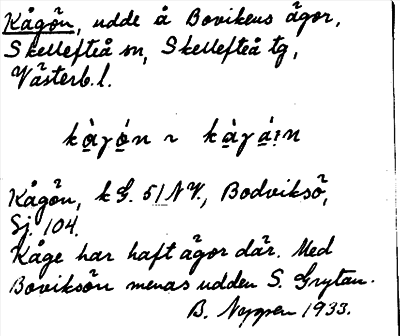 Kågön, udde å Bovikens ägor,
Skellefteå sn, Skellefteå tg,
Västerb. l.
kågön, k G. 51 NV., Bodviksö,
Sj. 104.
Kåge har haft ägor där. Med
Boviksön menas udden S. Grytan.
B. Nygren 1933.